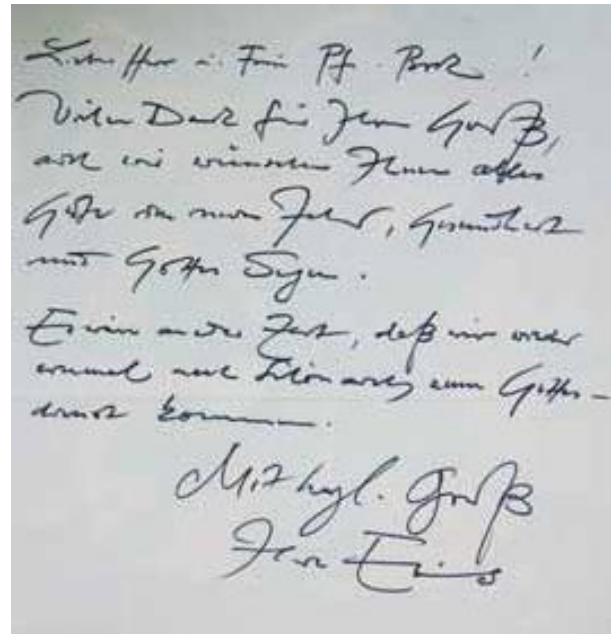 Liebe Herr u. Frau Pf. !
Vielen Dank für Ihren Gruß,
auch wir wünschen Ihnen alles
Gute im neuen Jahr, Gesundheit
und Gottes Segen.
Es wäre an der Zeit, daß wir wieder
einmal nach zum Gottes-
dienst kommen.
Mit hzgl. Gruß
Ihre